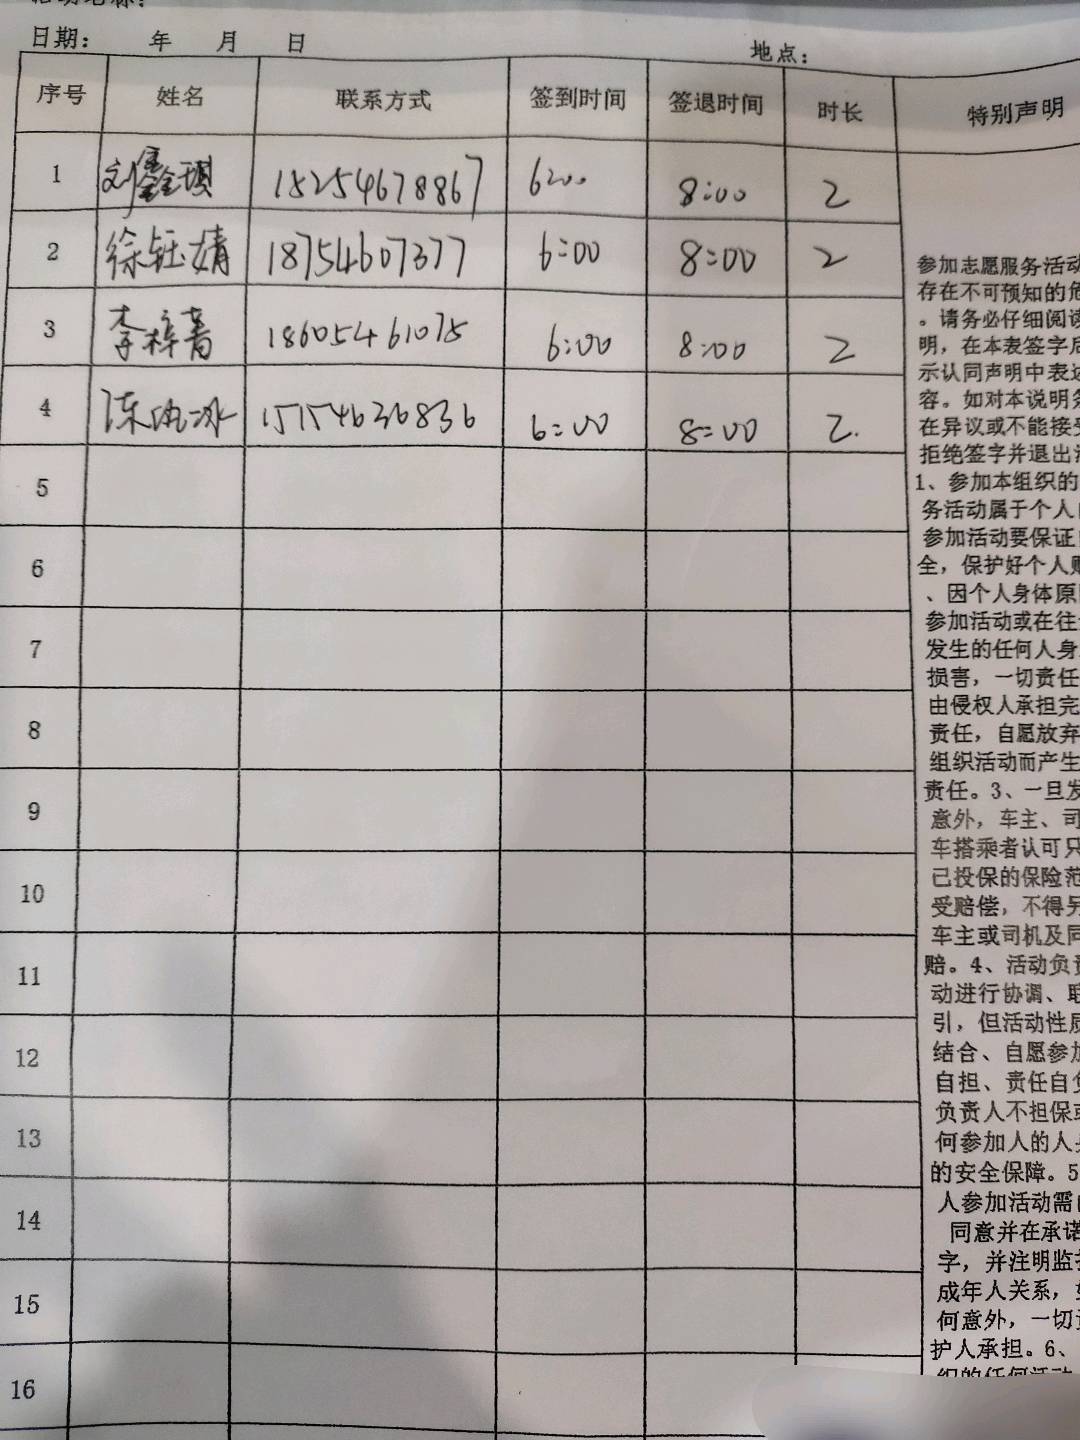 活动名称：
日期： 年 月 日 地点：
序号 姓名 联系方式 签到时间 签退时间 时长 特别声明
1 刘鑫琪 15254678867 6:00 8:00 2
2 徐钰婧 18754607377 6:00 8:00 2
3 李梓菁 18605461075 6:00 8:00 2
4 陈 冰 15154636836 6:00 8:00 2.
5
6
7
8
9
10
11
12
13
14
15
16
参加志愿服务活动
存在不可预知的危
。请务必仔细阅读
明，在本表签字后
示认同声明中表达
容。如对本说明条
在异议或不能接受
拒绝签字并退出活
1、参加本组织的
务活动属于个人自
参加活动要保证
全，保护好个人财
、因个人身体原因
参加活动或在往
发生的任何人身
损害，一切责任
由侵权人承担完
责任，自愿放弃
组织活动而产生
责任。3、一旦发
意外，车主、司
车搭乘者认可只
已投保的保险范
受赔偿，不得另
车主或司机及同
赔。4、活动负责
动进行协调、联
引，但活动性质
结合、自愿参加
自担、责任自负
负责人不担保
何参加人的人身
的安全保障。5
人参加活动需
同意并在承诺
字，并注明监护
成年人关系，如
何意外，一切责
护人承担。6、
织的任何活动